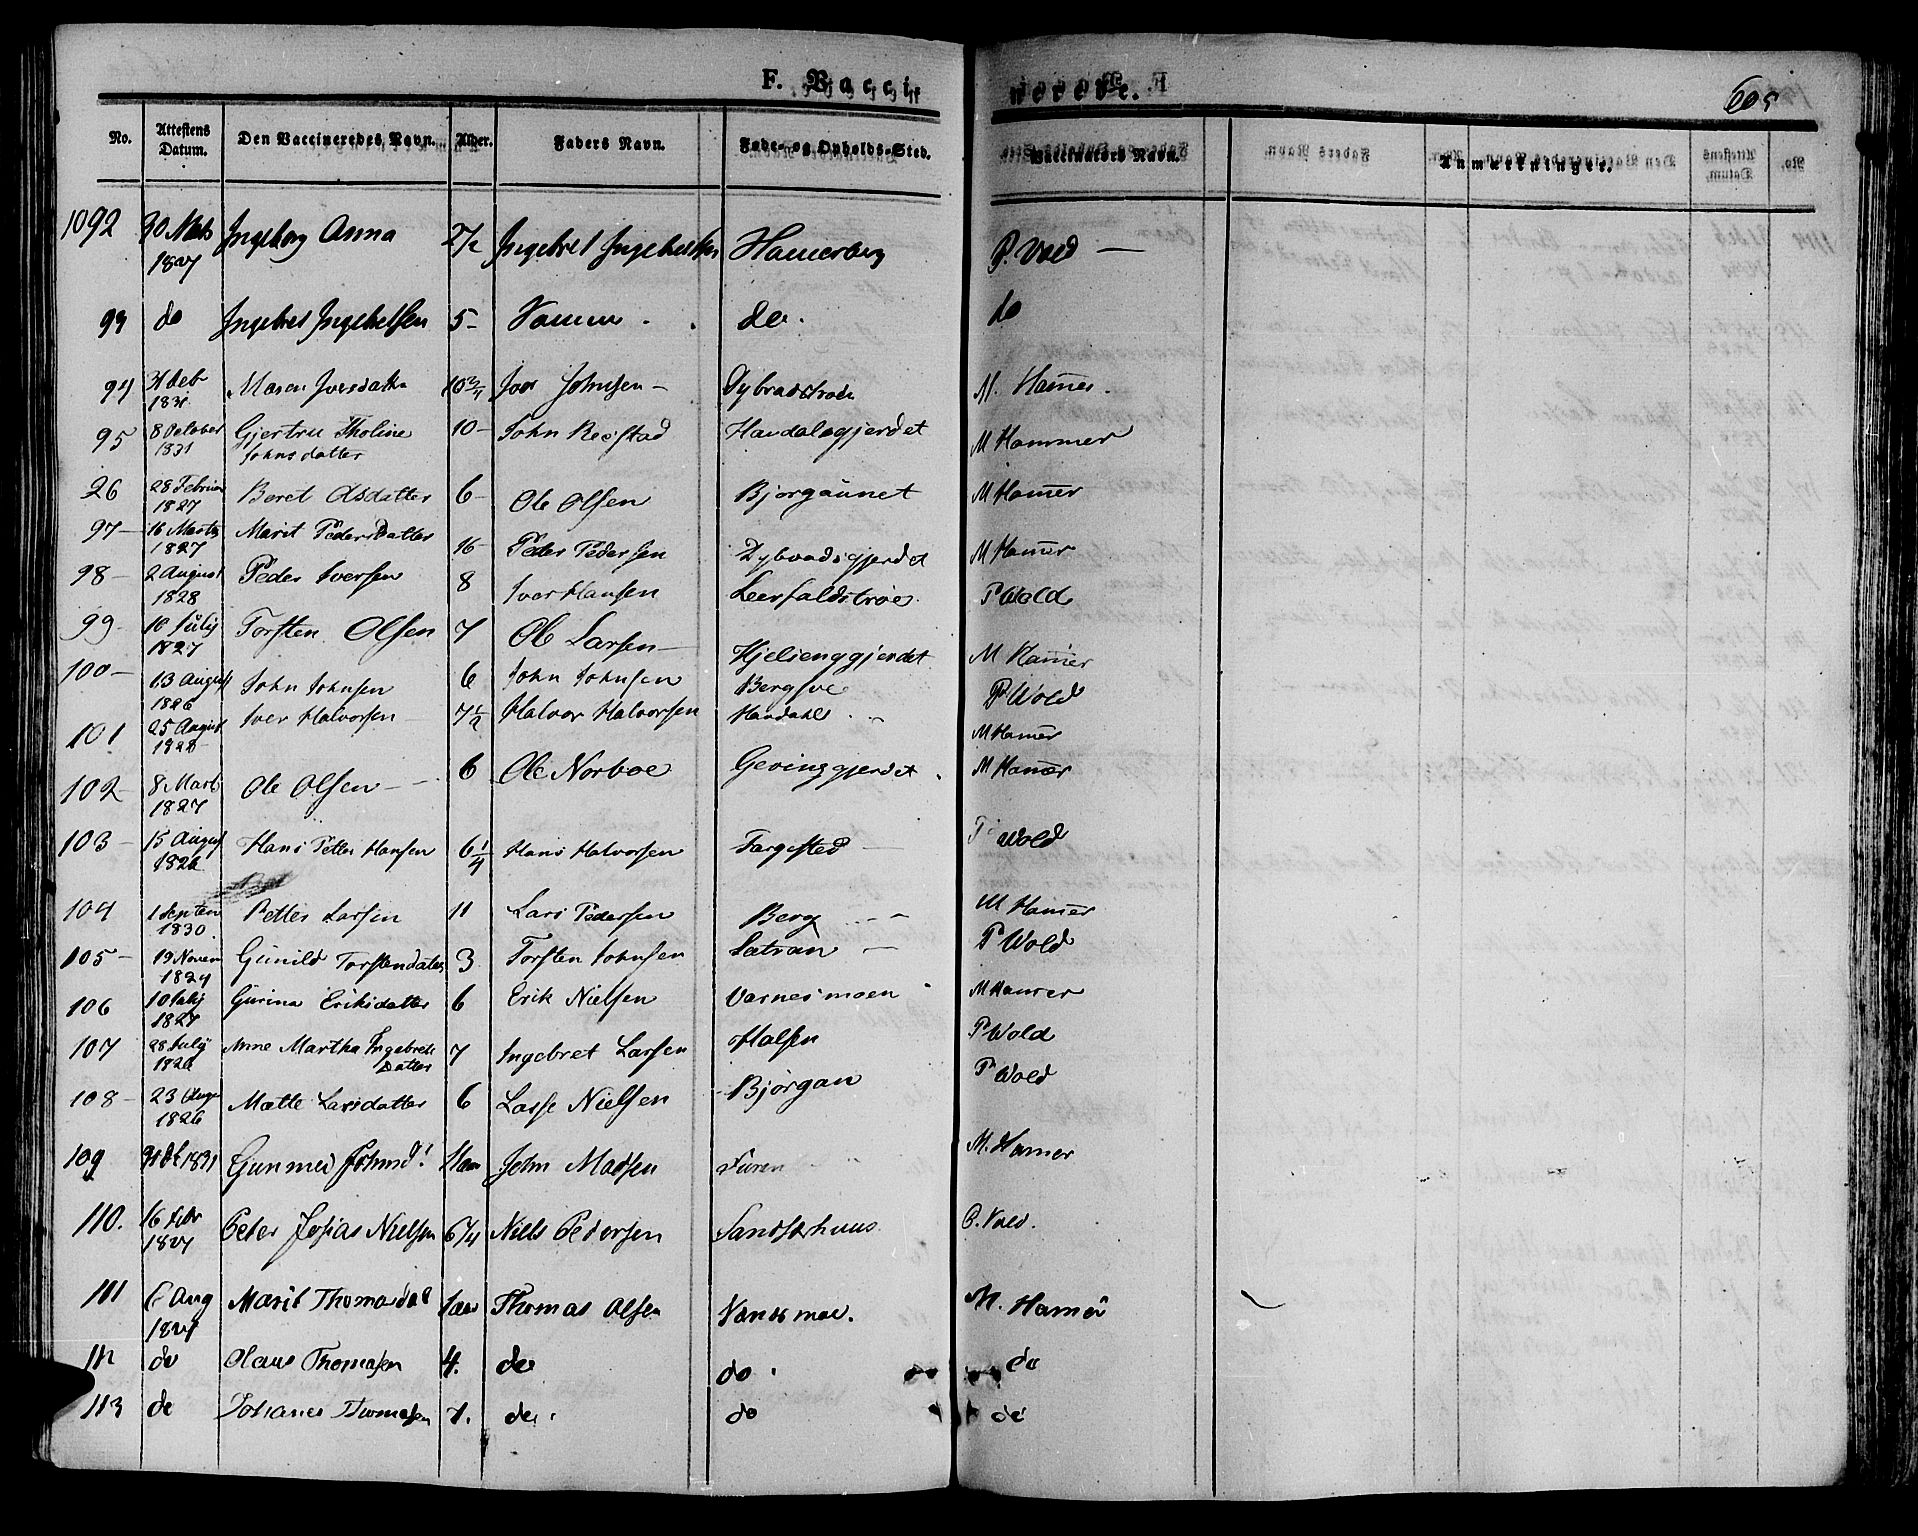 F. Vaccinerede.
605
No. Attestens Datum. Den Vaccineredes Navn. Alder. Faders Navn. Føde- og Opholds-Sted. Vaccinators Navn. Anmærkninger.
1092 Ingeborg Anna 2 1/2 Ingebret Hamerberg P. Vold —
1827
93 do Ingebret Ingebretsen 5 - do. do
94 31 Deb Maren Iversdatter 10 3/4 Iver Johnsen - M. Hamer.
1831
95 8 October Gjertru Tholine 10 - John Havdalsgjerdet M Hammer
1831 Johnsdatter
26 28 Februar Beret Olsdatter 6 - Ole Olsen Bjørgaunet M Hamer
1827
97 - 16 Marts Marit PedersDatter 16 - Peder Pedersen Dybvadsgjerdet M Hamer
1827
98 - 2 August Peder Iversen 8 Iver Hansen Leerfaldstrøe P Wold
1828
99 - 10 July Torsten Olsen 7 Ole Larsen - Hjelsenggjerdet M Hamer
1827
100 - 13 August John Johnsen 6 John Johnsen P Wold
1826
101 25 August Iver Halvorsen 7 1/2 Halvor Halvorsen Havdahl M Hamer
1828
102 8 Marts Ole Olsen - - 6 Ole Norboe Gevinggjerdet M Hamer
1827
103 - 15 August Hans Petter Hansen 6 1/4 Hans Halvorsen Fargested P Wold
1826
104 1 Septem Petter Larsen 11 Lars Pedersen Berg M Hamer
1830
105 - 19 Novem Gunild Torstendatter 3 Torsten Johnsen Satran - P Wold
1824
106 10 July Gurina Eriksdatter 6 Erik Nielsen Værnesmoen M Hamer
1827
107 28 July Anne Martha Ingebrets 7 Ingebret Larsen Halsen P Wold
1826 Datter
108 - 23 Augu Mætte Larsdatter 6 Lasse Nielsen Bjørgan P Wold
1826
109 1831 John Madsen M. Hamer
110. 16 Febr Peter Josias Nielsen 6 1/4 Niels Pedersen P. Vold.
1827
111 6 Aug Marit Thomasdat Thomas Olsen M. Hamer
1827
112 do Olaus Thomasen 4. do do do
113 do Johanes Thomasen 7. do do do